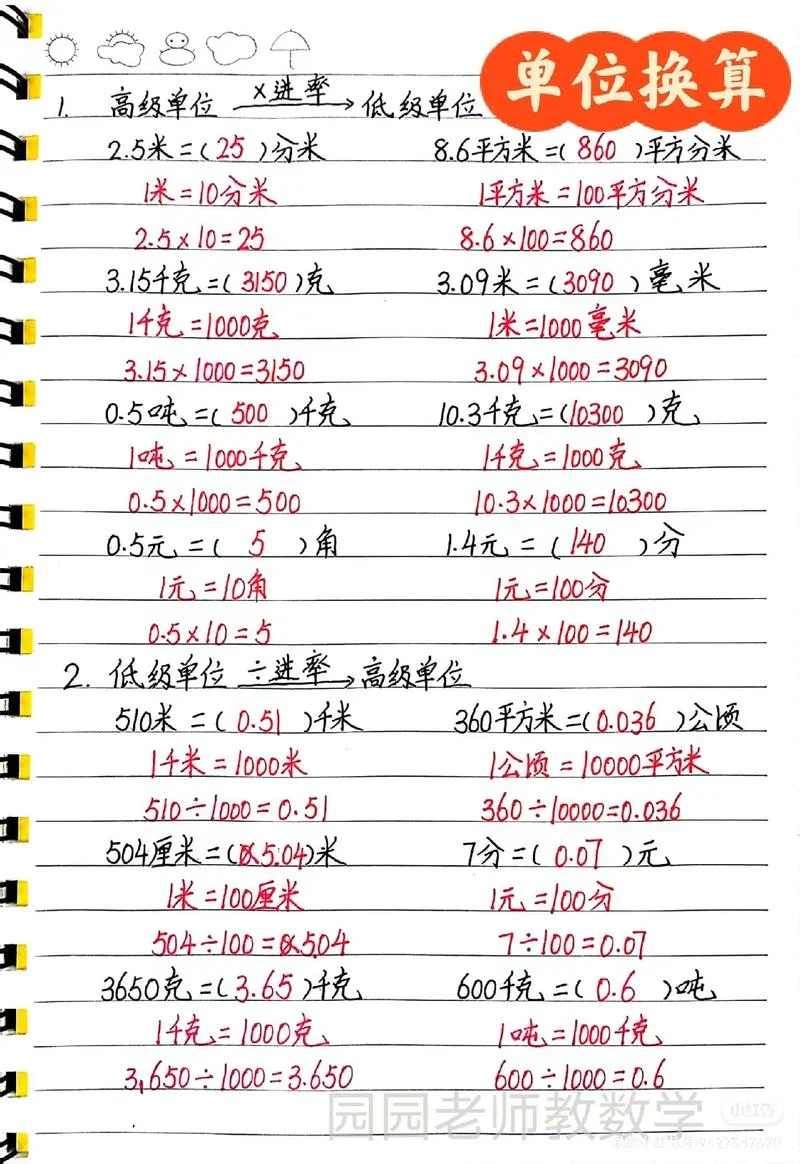 单位换算
1. 高级单位 ×进率→ 低级单位
2.5米=(25)分米 8.6平方米=(860)平方分米
1米=10分米 1平方米=100平方分米
2.5×10=25 8.6×100=860
3.15千克=(3150)克 3.09米=(3090)毫米
1千克=1000克 1米=1000毫米
3.15×1000=3150 3.09×1000=3090
0.5吨=(500)千克 10.3千克=(10300)克
1吨=1000千克 1千克=1000克
0.5×1000=500 10.3×1000=10300
0.5元=(5)角 1.4元=(140)分
1元=10角 1元=100分
0.5×10=5 1.4×100=140
2. 低级单位 ÷进率→ 高级单位
510米=(0.51)千米 360平方米=(0.036)公顷
1千米=1000米 1公顷=10000平方米
510÷1000=0.51 360÷10000=0.036
504厘米=(5.04)米 7分=(0.07)元
1米=100厘米 1元=100分
504÷100=5.04 7÷100=0.07
3650克=(3.65)千克 600千克=(0.6)吨
1千克=1000克 1吨=1000千克
3,650÷1000=3.650 600÷1000=0.6
园园老师教数学
小红书